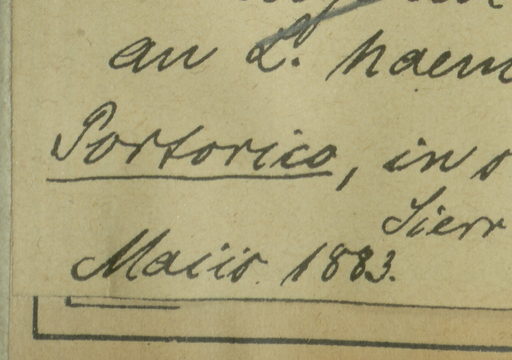 an L. haem
Portorico, in s
Sierr
Maiis 1883.